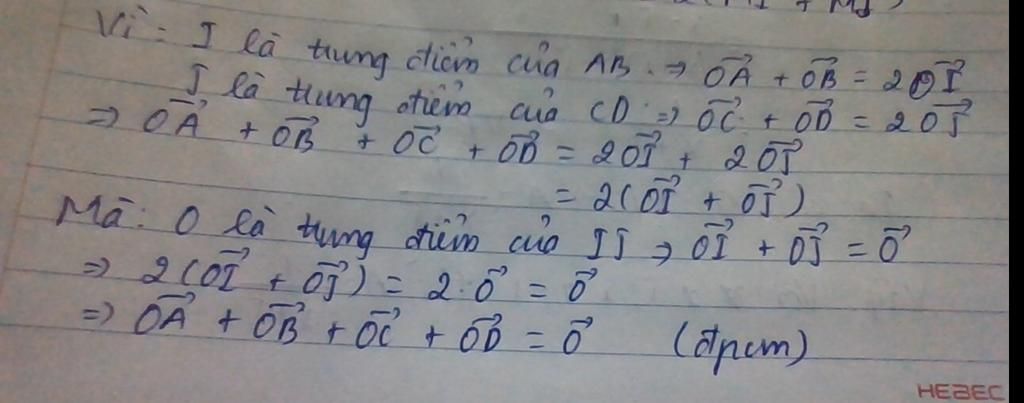 + MJ)
Vì: I là trung điểm của AB. ⇒ OA⃗ + OB⃗ = 2OI⃗
J là trung điểm của CD ⇒ OC⃗ + OD⃗ = 2OJ⃗
⇒ OA⃗ + OB⃗ + OC⃗ + OD⃗ = 2OI⃗ + 2OJ⃗
= 2(OI⃗ + OJ⃗)
Mà: O là trung điểm của IJ ⇒ OI⃗ + OJ⃗ = O⃗
⇒ 2(OI⃗ + OJ⃗) = 2.O⃗ = O⃗
⇒ OA⃗ + OB⃗ + OC⃗ + OD⃗ = O⃗ (đpcm)
HEBEC